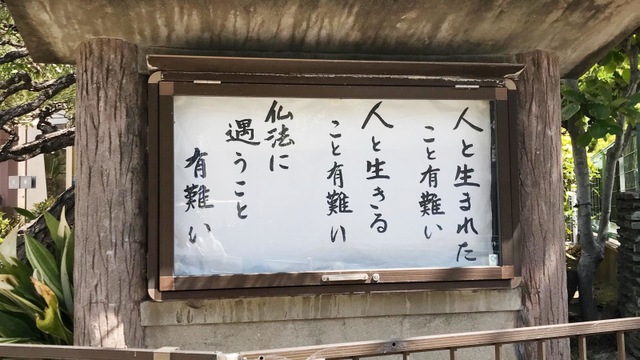 人と生まれた
こと有難い
人と生きる
こと有難い
仏法に
遇うこと
有難い